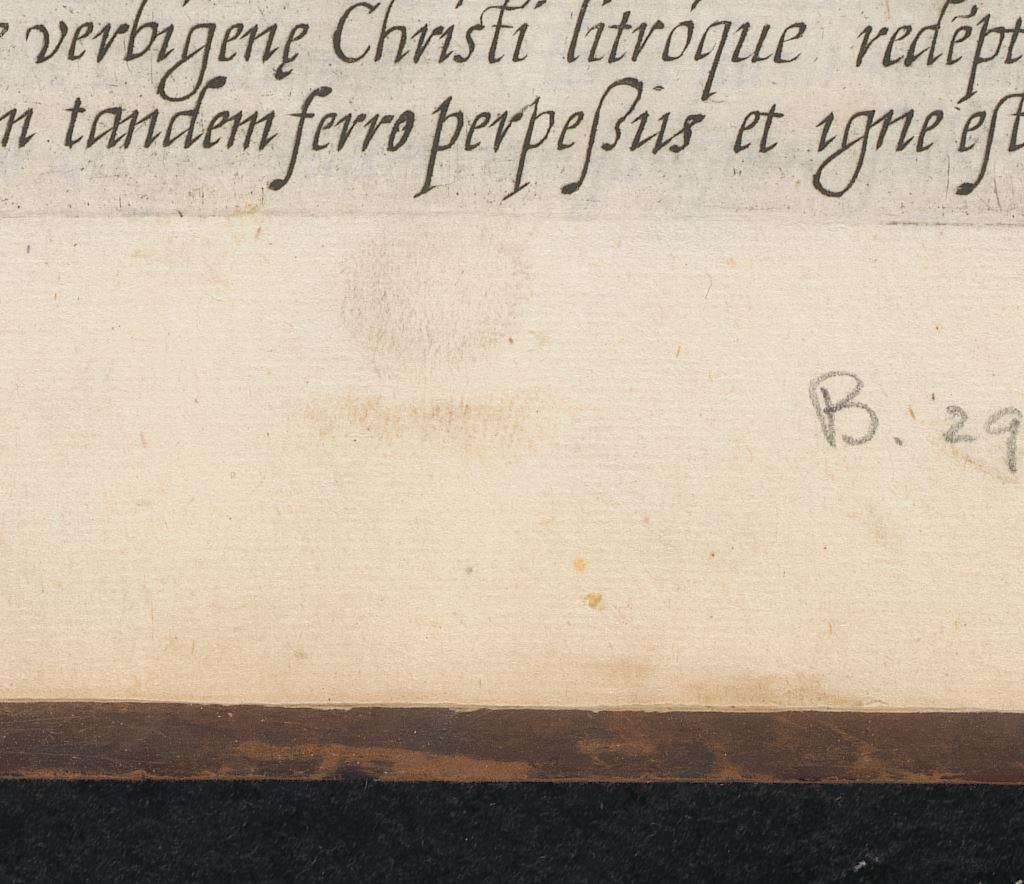 verbigenę Christi litróque redẽpt
n tandem ferro perpeßus et igne est
B. 29